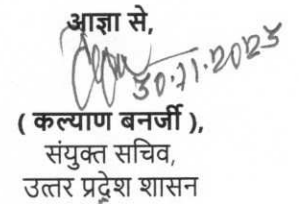 आज्ञा से,
30.11.2023
( कल्याण बनर्जी ),
संयुक्त सचिव,
उत्तर प्रदेश शासन